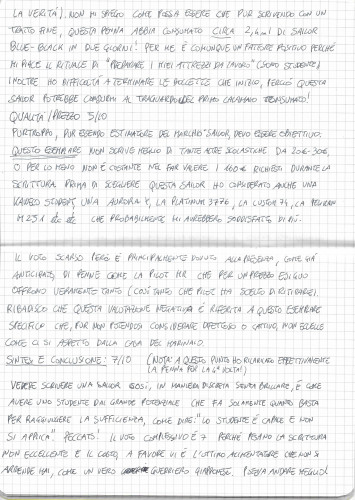 LA VERITÀ). NON MI SPIEGO COME POSSA ESSERE CHE PUR SCRIVENDO CON UN
TRATTO FINE, QUESTA PENNA ABBIA CONSUMATO CIRCA 2,4 ml DI SAILOR
BLUE-BLACK IN DUE GIORNI! PER ME È COMUNQUE UN FATTORE POSITIVO PERCHÉ
MI PIACE IL RITUALE DI "PREPARARE I MIEI ATTREZZI DA LAVORO" (SONO STUDENTE)
INOLTRE HO DIFFICOLTÀ A TERMINARE LE BOCCETTE CHE INIZIO, PERCIÒ QUESTA
SAILOR POTREBBE CONDURMI AL TRAGUARDO DEL PRIMO CALAMAIO CONSUMATO!
QUALITÀ/PREZZO 5/10
PURTROPPO, PUR ESSENDO ESTIMATORE DEL MARCHIO SAILOR, DEVO ESSERE OBIETTIVO.
QUESTO ESEMPLARE NON SCRIVE MEGLIO DI TANTE ALTRE SCOLASTICHE DA 20€-30€,
O PER LO MENO NON È COSTANTE NEL FAR VALERE I 100€ RICHIESTI DURANTE LA
SCRITTURA. PRIMA DI SCEGLIERE QUESTA SAILOR HO CONSIDERATO ANCHE UNA
KAWECO STUDENT, UNA AURORA K, LA PLATINUM 3776, LA LUSTER 74, LA PELIKAN
M251 CHE PROBABILMENTE MI AVREBBERO SODDISFATTO DI PIÙ.
IL VOTO SCARSO PERÒ È PRINCIPALMENTE DOVUTO ALLA PRESENZA, COME GIÀ
ANTICIPATO, DI PENNE COME LA PILOT MR CHE PER UN PREZZO ESIGUO
OFFRONO VERAMENTE TANTO (COSÌ TANTO CHE PILOT HA SCELTO DI RITIRARE).
RIBADISCO CHE QUESTA VALUTAZIONE NEGATIVA È RIFERITA A QUESTO ESEMPLARE
SPECIFICO CHE, PUR NON POTENDOSI CONSIDERARE DIFETTOSO O CATTIVO, NON ECCELLE
COME CI SI ASPETTA DALLA CASA DEL MARINAIO.
SINTESI E CONCLUSIONE: 7/10 (NOTA: A QUESTO PUNTO HO RICARICATO EFFETTIVAMENTE
LA PENNA PER LA 4ª VOLTA!)
VEDERE SCRIVERE UNA SAILOR COSÌ, IN MANIERA DISCRETA SENZA BRILLARE, È COME
AVERE UNO STUDENTE DAL GRANDE POTENZIALE CHE FA SOLAMENTE QUANTO BASTA
PER RAGGIUNGERE LA SUFFICIENZA, COME DIRE: "LO STUDENTE È CAPACE E NON
SI APPLICA". PECCATO! IL VOTO COMPLESSIVO È 7 PERCHÉ PESANO LA SCRITTURA
NON ECCELLENTE E IL COSTO, A FAVORE VI È L'OTTIMO ALIMENTATORE CHE NON SI
ARRENDE MAI, COME UN VERO GUERRIERO GIAPPONESE. POTEVA ANDARE MEGLIO!